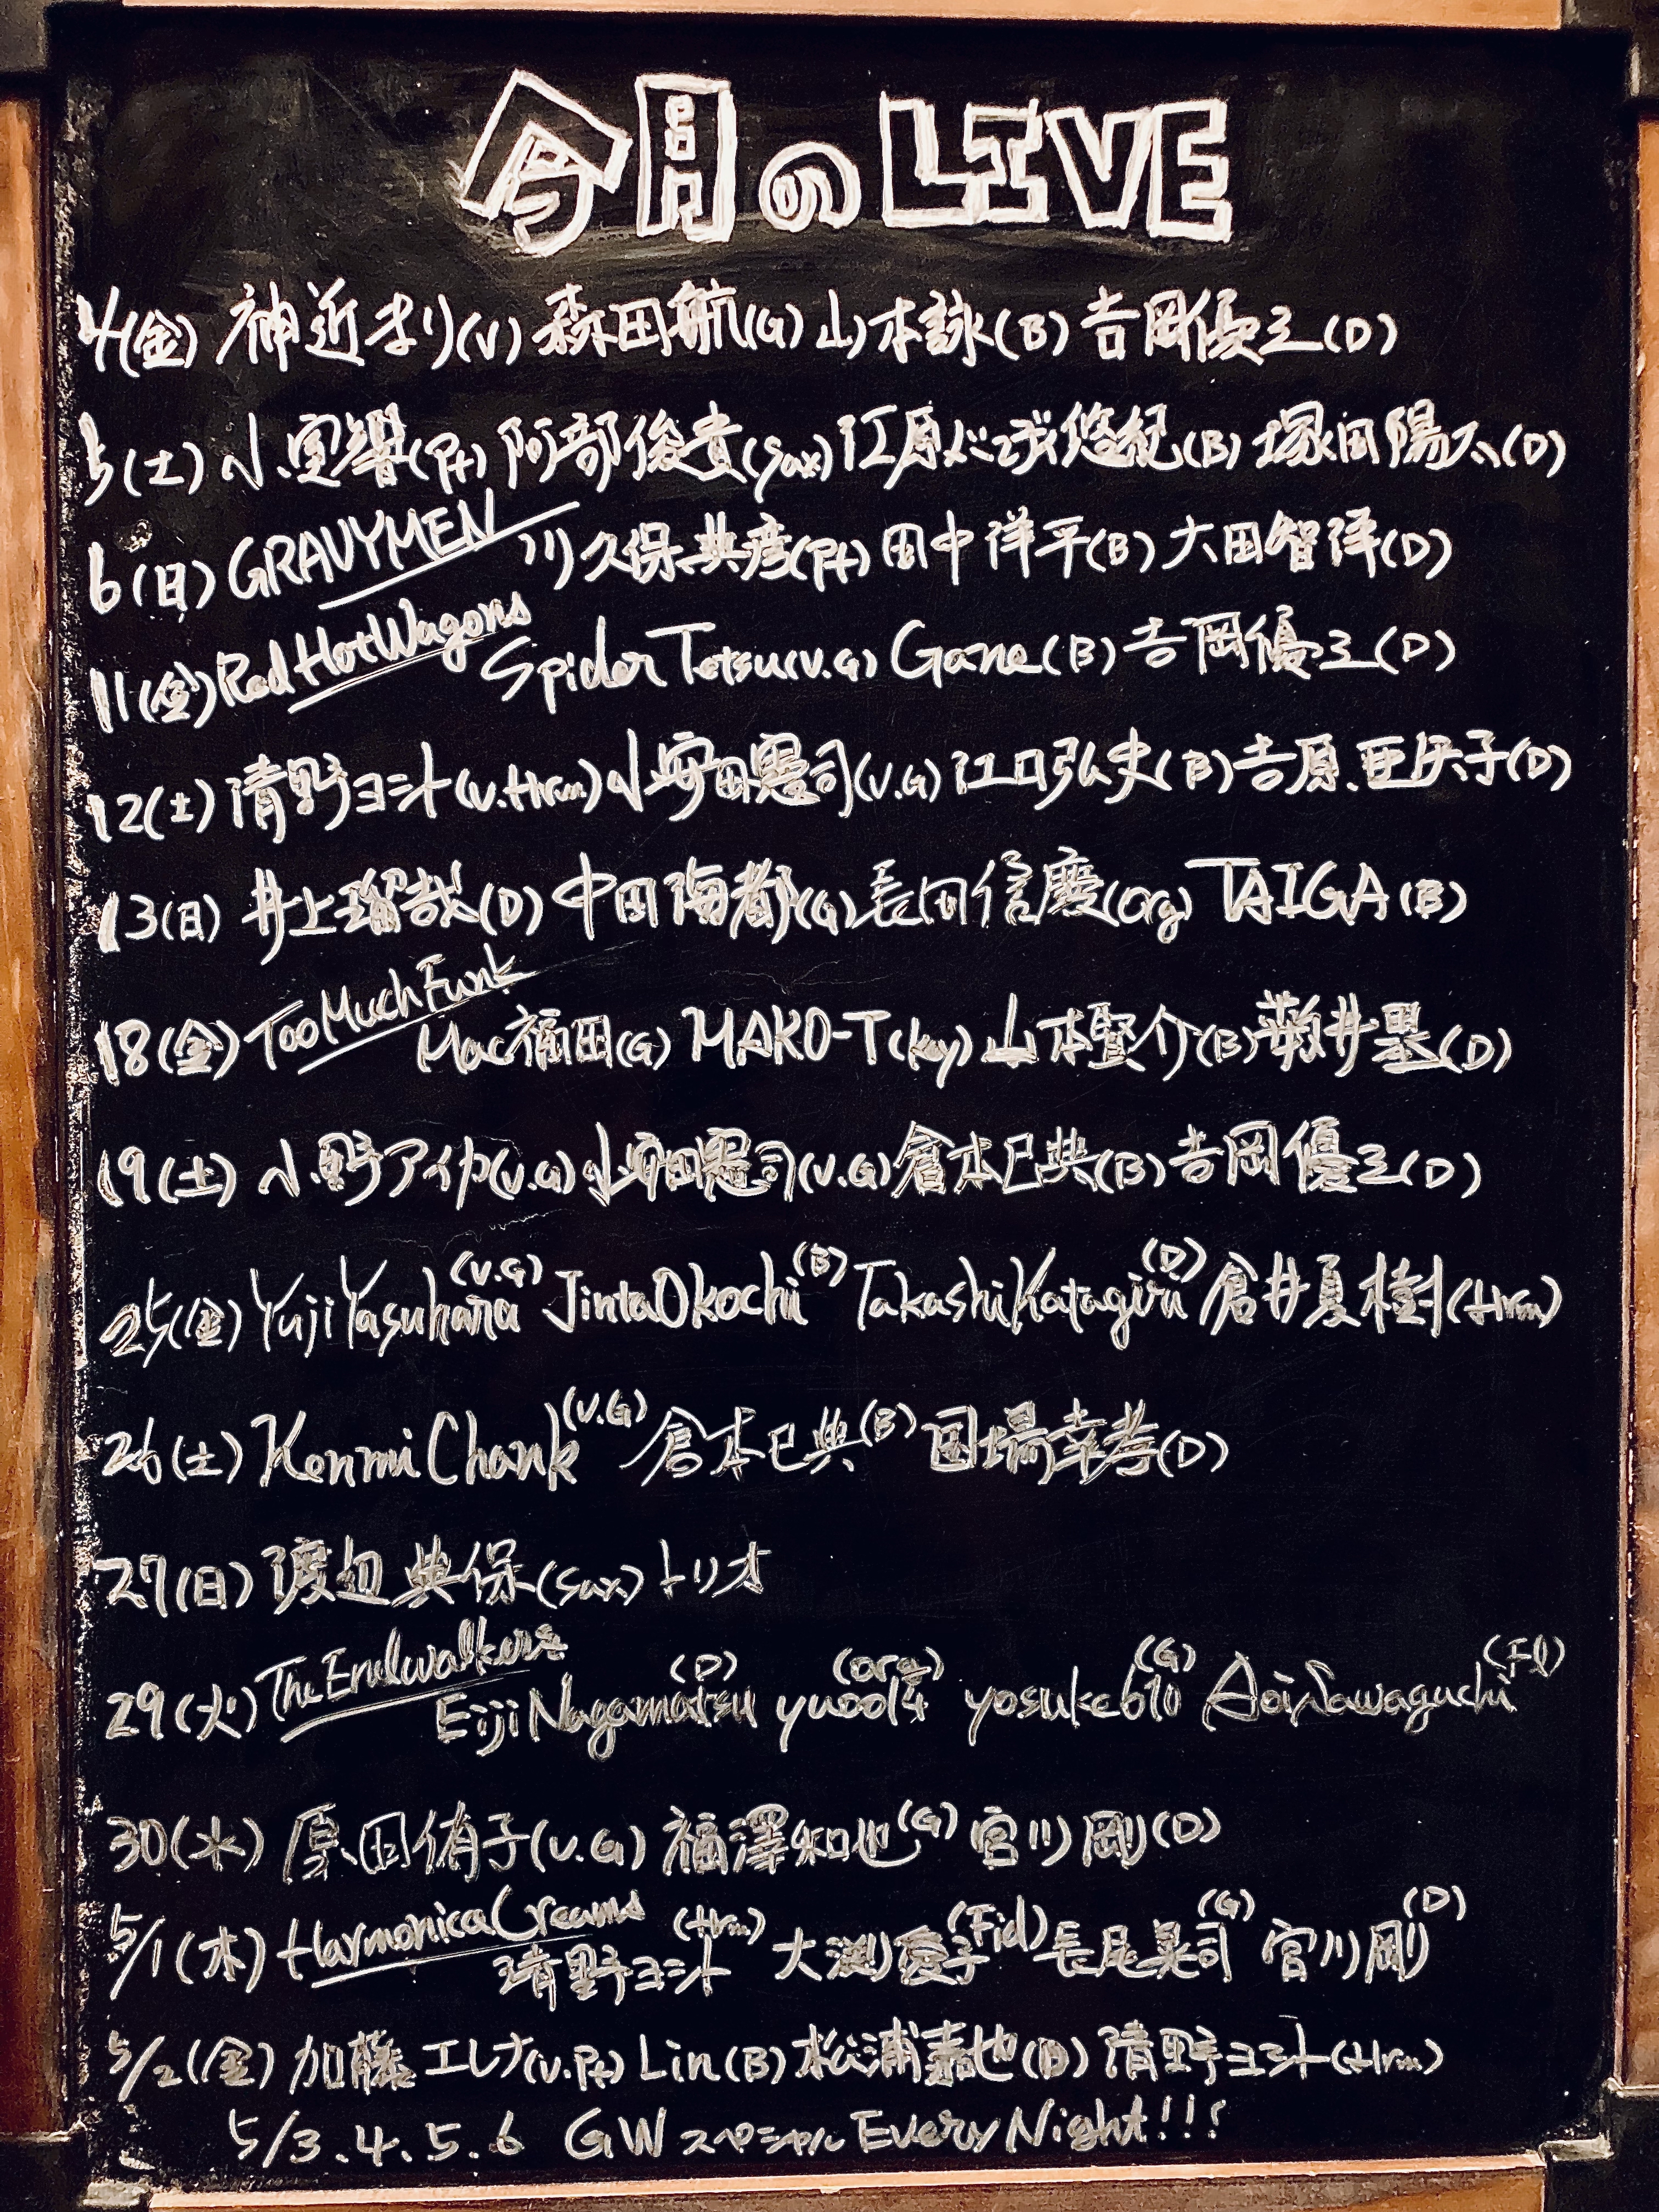 今月のLIVE
4(金) 神近まり(V) 森田航(G) 山本詠(B) 吉岡優三(D)
5(土) 小室響(Pf) 阿部俊貴(Sax) 江原バンチ悠紀(B) 塚田陽太(D)
6(日) GRAVYMEN 川久保典彦(Pf) 田中洋平(B) 大田智洋(D)
11(金) Red Hot Wagons Spider Tetsu(V.G) Gane(B) 吉岡優三(D)
12(土) 清野ヨシト(V.Hrm) 小安田憲司(V.G) 江口弘史(B) 吉原亜矢子(D)
13(日) 井上瑠哉(D) 中田海都(G) 長田信慶(Org) TAIGA(B)
18(金) Too Much Funk Mac福田(G) MAKO-T(key) 山本堅介(B) 薮井塁(D)
19(土) 小野アイカ(V.G) 小安田憲司(V.G) 倉本巳典(B) 吉岡優三(D)
25(金) Yuji Yasuhara(V.G) Jinta Okochi(B) Takashi Katagiri(D) 倉井夏樹(Hrm)
26(土) Kenmi Chank(V.G) 倉本巳典(B) 国場幸孝(D)
27(日) 渡辺典保(Sax) トリオ
29(火) The Endwalkers Eiji Nagamatsu(D) yuool4(org) yosuke610(G) Aoi Sawaguchi(Fl)
30(水) 原田侑子(V.G) 福澤和也(G) 宮川剛(D)
5/1(木) Harmonica Creams 清野ヨシト(Hrm) 大渕愛子(Fid) 長尾晃司(G) 宮川剛(D)
5/2(金) 加藤エレナ(V.Pf) Lin(B) 松浦嘉也(D) 清野ヨシト(Hrm)
5/3.4.5.6 GW スペシャル Every Night!!!